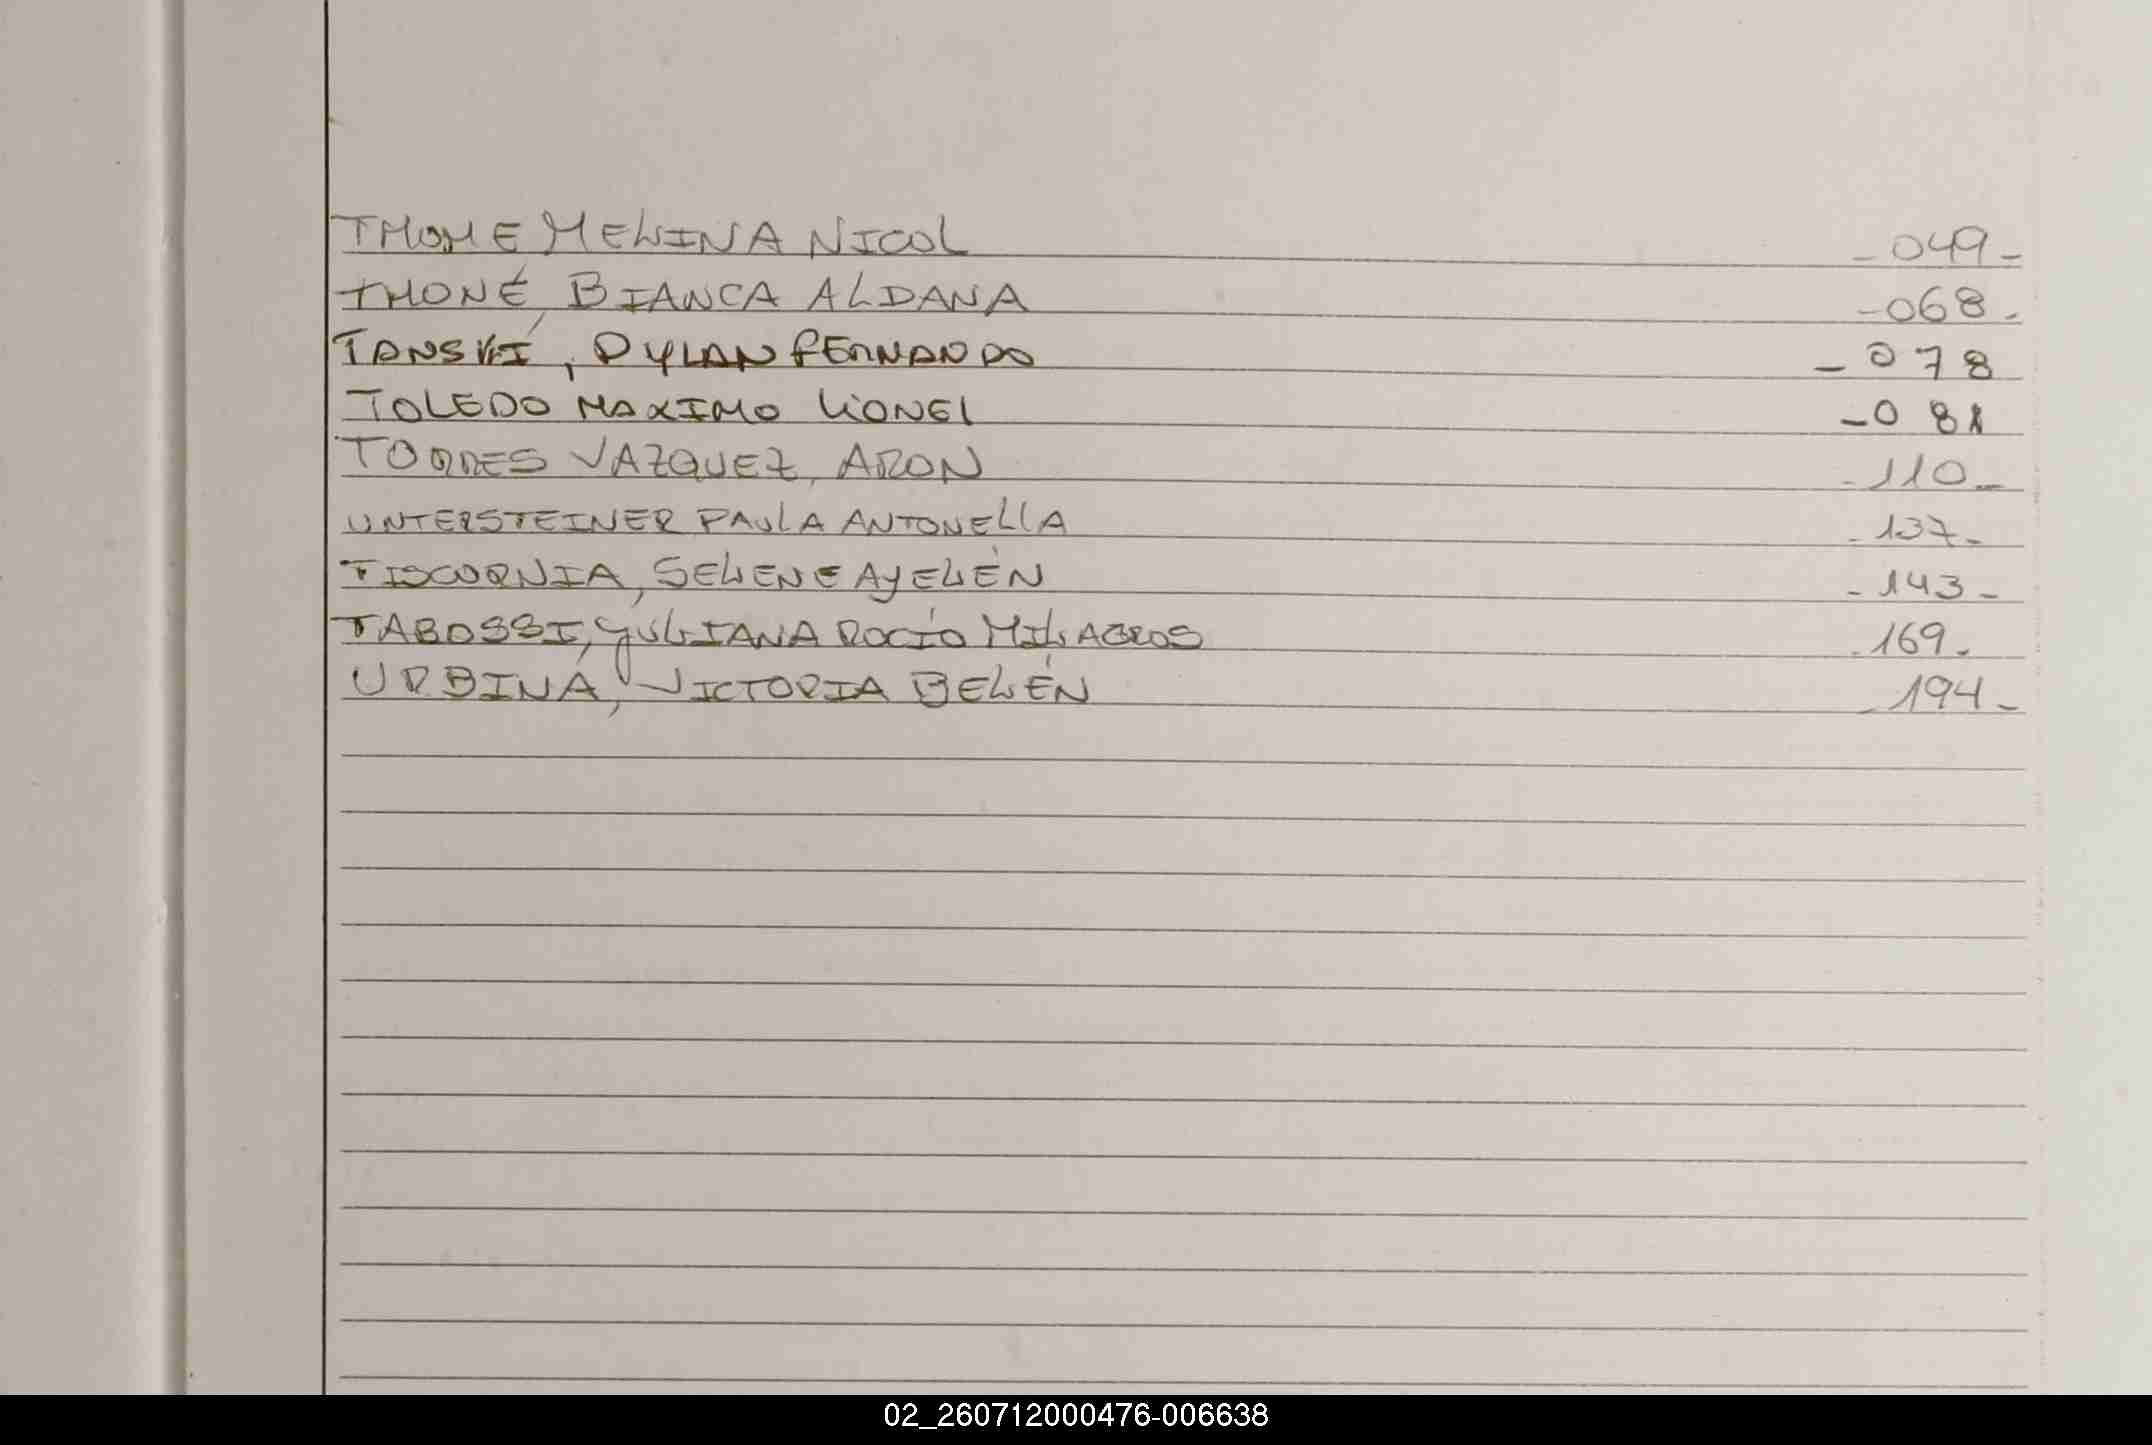 THOME MELINA NICOL _ 049 _
THONÉ, BIANCA ALDANA - 068 -
TANSKI, DYLAN FERNANDO _ 078
TOLEDO MAXIMO LIONEL _ 081
TORRES VAZQUEZ, ARON - 110 _
UNTERSTEINER PAULA ANTONELLA - 137 -
TISCORNIA, SELENE AYELÉN - 143 -
TABOSSI, YULIANA ROCÍO MILAGROS - 169 -
URBINA, VICTORIA BELÉN _ 194 _
02_260712000476-006638